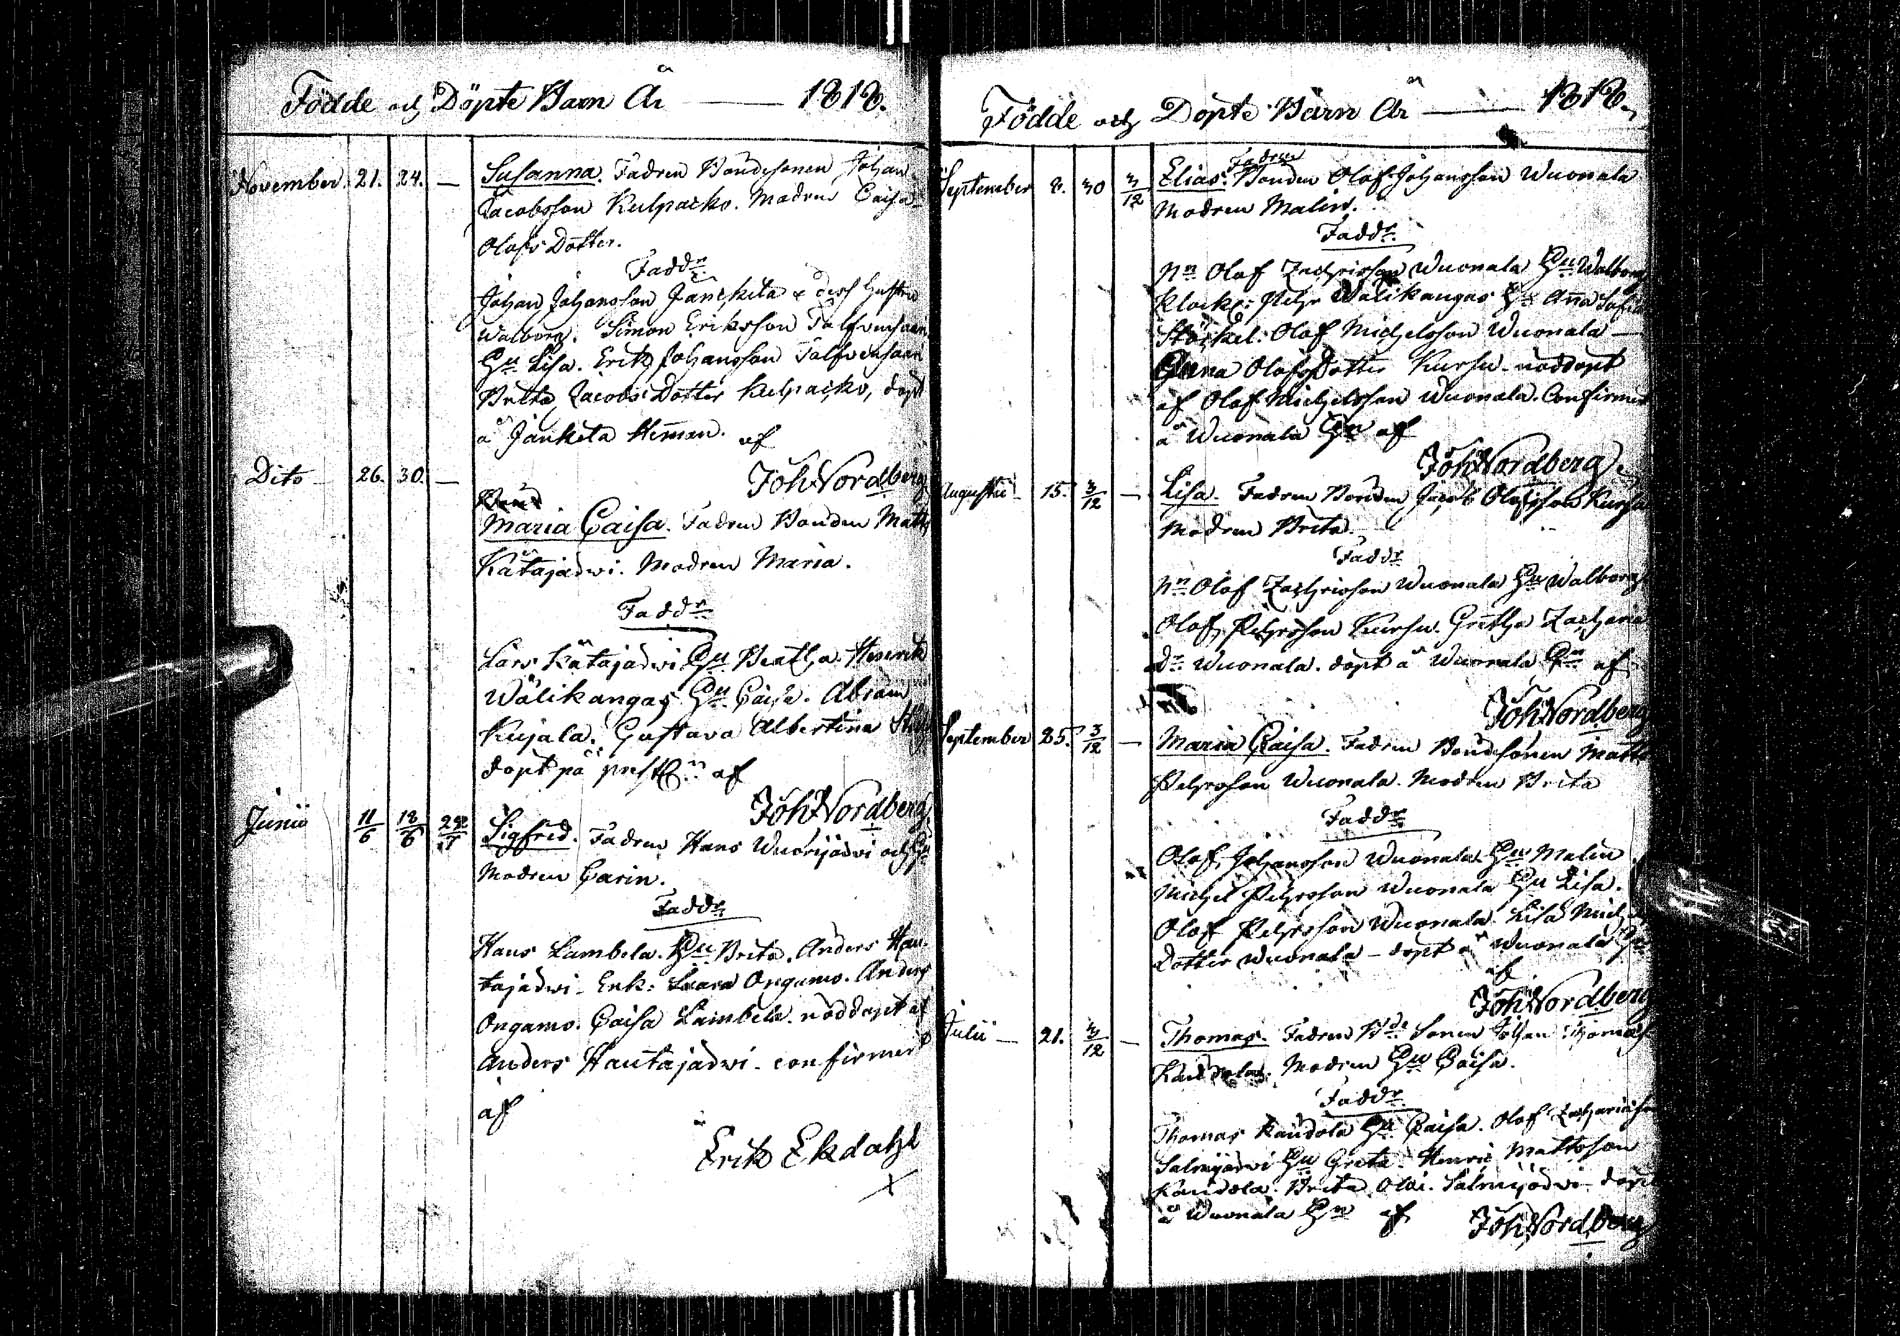 Födde och Döpte Barn År — 1818.
November 21. 24. — Susanna. Fadren Bondesonen Johan
Jacobsson Kulpacko. Modren Caisa
Olofs Dotter.
Faddr
Johan Johansson Jäncketa & dess Hustru
Walborg. Simon Eriksson Talfvensaari
Hu Lisa. Erik Johansson Talfvensaari
Brita Jacobs Dotter Kulpacko, döpt
å Janketa Heman. af
Joh Nordberg
Dito 26. 30. —
Maria Caisa. Fadren Bonden Matts
Kätajärwi. Modren Maria.
Faddr
Lars Kätajärwi Hu Beatha. Henrik
Wälikangas Hu Caisa. Abram
Kujala. Gustava Albertina
döpt på af
Joh Nordberg
Junii 11/6 18/6 Sigfred. Fadren Hans Wuorijärwi och Hu
Modren Carin.
Faddr
Hans Lambela. Hu Brita. Anders Hau-
tajärwi. Enk: Ongamo. Anders
Ongamo. Caisa Lambela. nöddöpt af
Anders Hautajärwi. confirmerd
af
Erik Ekdahl
Födde och Döpte Barn År — 1818.
September 8. 30 3/12 Elias. Fadren Bonden Olof Johansson Wuonala
Modren Malin.
Faddr
Nn Olof Zachrisson Wuonala Hu Walborg
Klock: Petr Wälikangas Hu Anna Sofia
Stöckel. Olof Michelsson Wuonala —
Olofs Dotter Kursu. nöddöpt
af Olof Michelsson Wuonala. Confirmerd
å Wuonala Hn af
Joh Nordberg
Augusti 15. 3/12 — Lisa. Fadren Bonden Jacob Olofsson Kursu
Modren Brita.
Faddr
Nn Olof Zachrisson Wuonala Hu Walborg
Olof Petrsson Kursu. Gretha Zacharias
Dr Wuonala. döpt å Wuonala Hn af
Joh Nordberg
September 25. 3/12 — Maria Caisa. Fadren Bondsonen Matts
Petrsson Wuonala. Modren Brita
Faddr
Olof Johansson Wuonala Hu Malin
Michel Petrsson Wuonala Hu Lisa.
Olof Petrsson Wuonala. Lisa Michels
Dotter Wuonala – döpt å Wuonala Hn
af
Joh Nordberg
Julii — 21. 3/12 — Thomas. Fadren Bde Sonen Johan Thomas
Kandola. Modren Hu Caisa.
Faddr
Thomas Kandola Hu Caisa. Olof Zachariasson
Salmijärwi Hu Greta. Henric Mattsson
Kandola. Brita Olai. Salmijärwi. döpt
å Wuonala Hn af Joh Nordberg